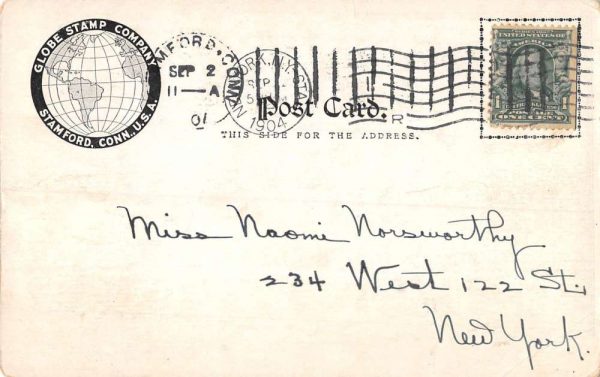 GLOBE STAMP COMPANY
STAMFORD, CONN., U.S.A.
MFORD, CONN.
SEP 2
11-A
YORK, N.Y. STA.
SEP
1904
R
UNITED STATES OF AMERICA
1 1
ONE CENT
Post Card.
THIS SIDE FOR THE ADDRESS.
Miss Naomi Norsworthy
234 West 122 St.,
New York.